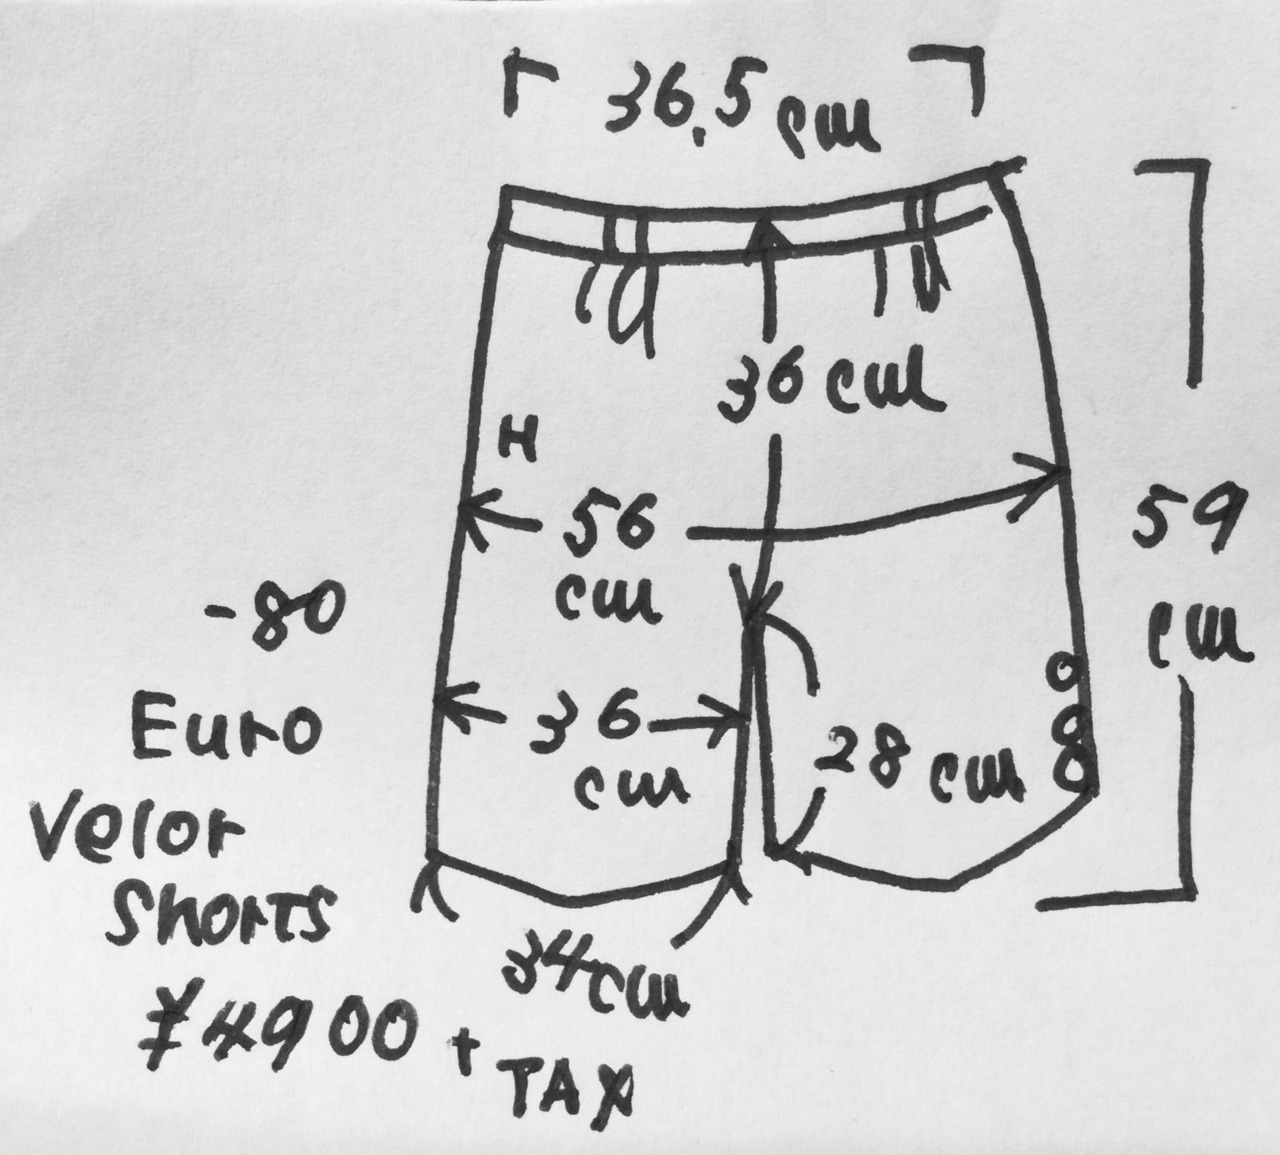 36.5 cm
36 cm
H
56
cm
59
cm
-80
Euro
Velor
Shorts
36
cm
28 cm
34cm
¥4900 + TAX